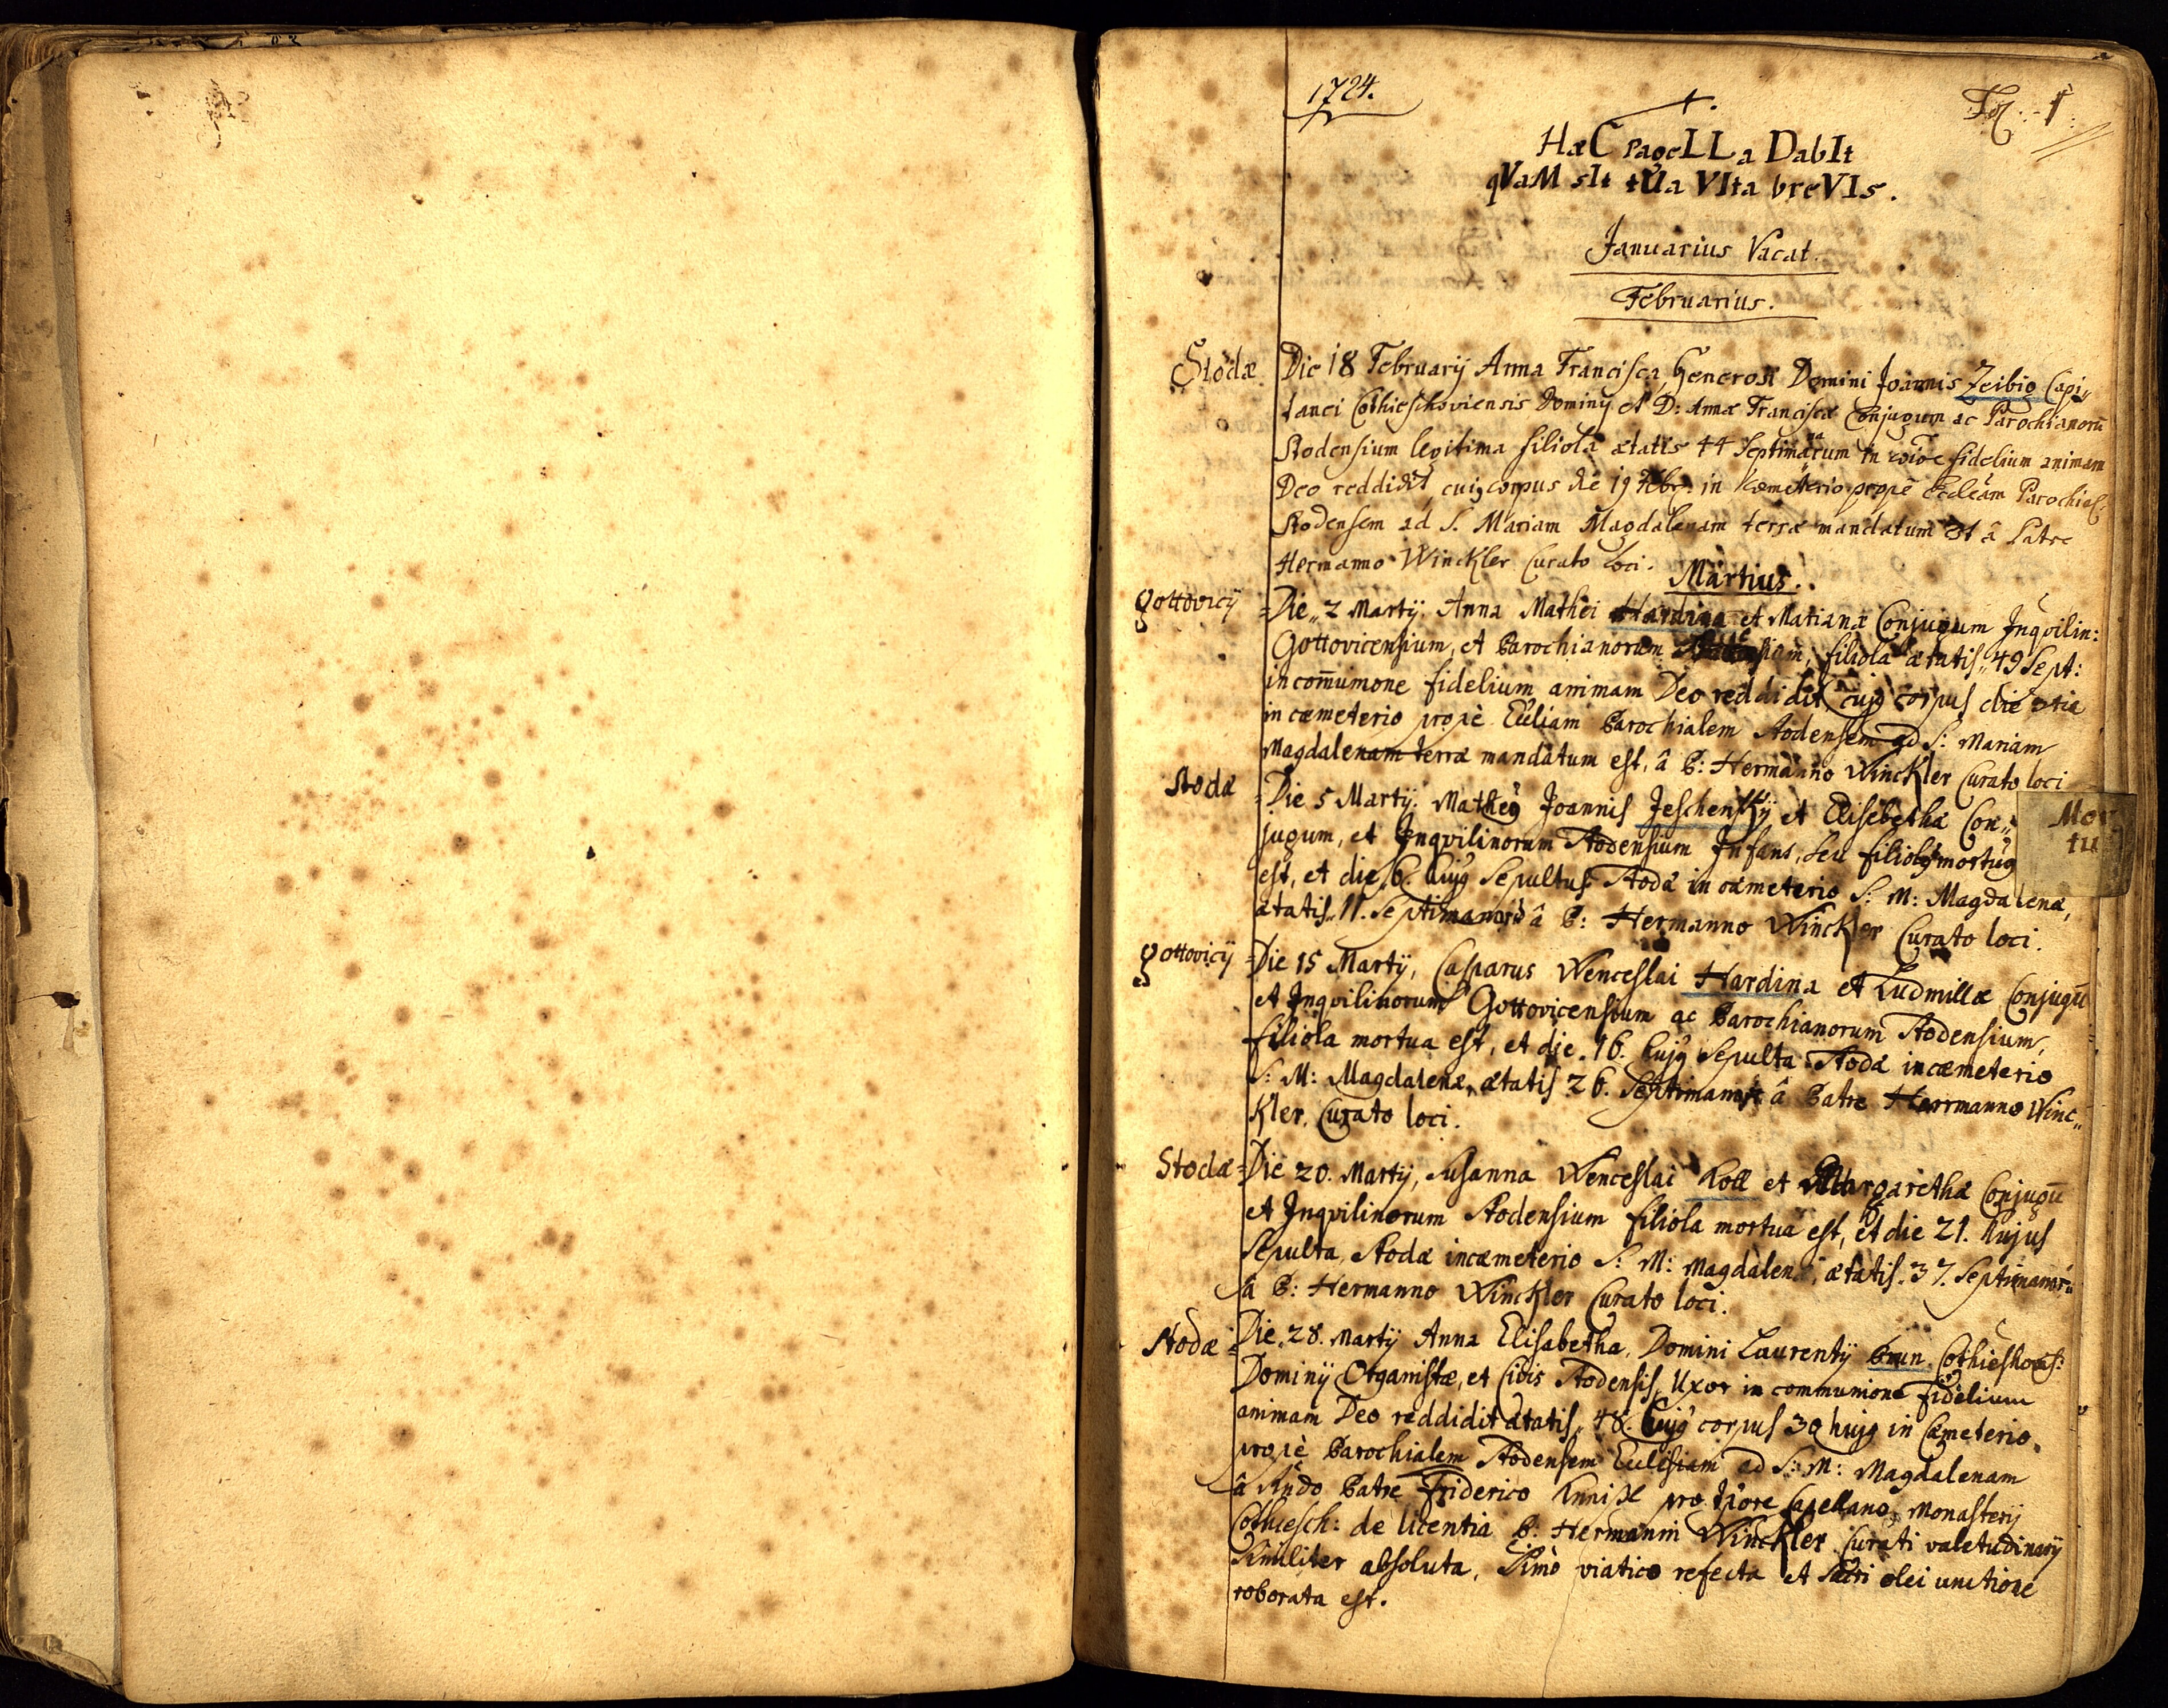 1724.
Fol: 1
HæC PageLLa DabIt
qVaM sIt tUa VIta breVIs.
Januarius Vacat.
Februarius.
Stodæ Die 18 Februarij Anna Francisca, Generosi Domini Joannis Zeibig Capi„
tanei Cothieschoviensis Dominij et D: Annæ Franciscæ Conjugum ac Parochianorū
Stodensium legitima filiola ætatis 44 Septimanarum in fidelium animam
Deo reddidit, cuiq corpus die 19 Febr: in Kœmeterio propè Eccleam Parochial:
Stodensem ad S. Mariam Magdalenam terræ mandatum est â Patre
Hermanno Winckler Curato loci.
Martius.
Gottovicij =Die„ 2 Martij. Anna Mathei Hardina et Marianæ Conjugum Inqvilin:
Gottovicensium, et Parochianorum filiola ætatis„ 49 Sept:
in com̄unione fidelium animam Deo reddidit cujq corpus die 3tia
in cœmeterio propè Eccliam Parochialem Stodensem ad S: Mariam
Magdalenam terræ mandatum est, â P: Hermanno Winckler Curato loci
Stodæ =Die 5 Martij. Matheq Joannis Jeschensky et Elisebethæ Con„
jugum, et Inqvilinorum Stodensium Infans, seu filiolq mortuq
est, et die„ 6. hujq Sepultus Stodæ in cœmeterio S: M: Magdalenæ,
ætatis„ 11. Septimanorū â P: Hermanno Winckler Curato loci.
Mor
tu
Gottovicij =Die 15 Martij, Casparus Wenceslai Hardina et Ludmillæ Conjugū
et Inqvilinorum Gottovicensium ac Parochianorum Stodensium,
filiola mortua est, et die. 16. hujq Sepulta Stodæ in cæmeterio
S: M: Magdalenæ, ætatis 26. Septimanorū â Patre Herrmanno Winc„
Kler. Curato loci.
Stodæ =Die 20. Martij, Susanna Wenceslai Koll et Margarethæ Conjugū
et Inqvilinorum Stodensium filiola mortua est, et die 21. hujus
Sepulta Stodæ in cæmeterio S: M: Magdalenæ, ætatis. 37. Septimanorū
â P: Hermanno Winckler Curato loci.
Stodæ = Die. 28. Martij Anna Elisabetha. Domini Laurentij Brun Cothieshovs:
Dominij Organistæ, et Civis Stodensis, Uxor in communione fidelium
animam Deo reddidit ætatis„ 48. Cujq corpus 30 hujq in Cæmeterio.
propè Parochialem Stodensem Ecclesiam ad S: M: Magdalenam
â Rndo Patre Friderico pro Capellano Monasterij
Cothiesch: de licentia P: Hermanni Winckler Curati valetudinarij
Similiter absoluta, Ssmò viatico refecta et Sacri olei unctione
roborata est.